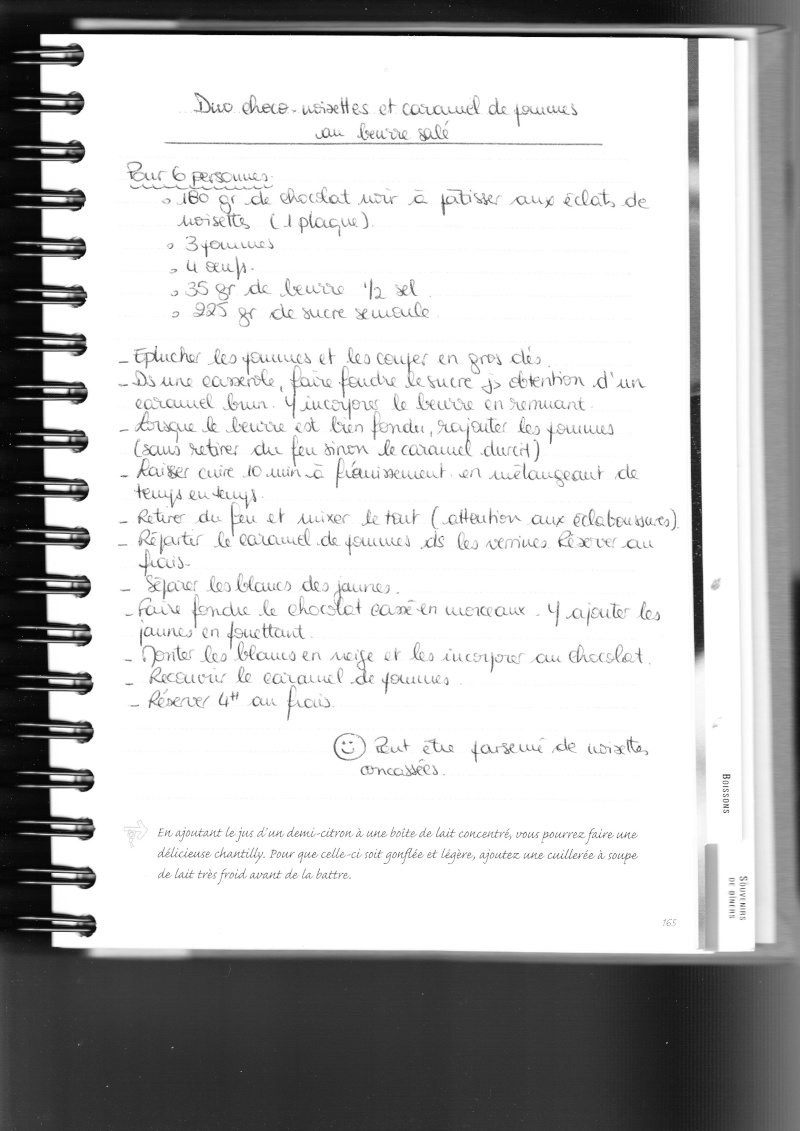 Duo choco-noisettes et caramel de pommes
au beurre salé
Pour 6 personnes:
180 gr de chocolat noir à pâtisser aux éclats de
noisettes (1 plaque).
3 pommes
4 œufs.
35 gr de beurre 1/2 sel
225 gr de sucre semoule
- Eplucher les pommes et les couper en gros dés.
- Ds une casserole, faire fondre le sucre js obtention d'un
caramel brun. Y incorporer le beurre en remuant.
- Lorsque le beurre est bien fondu, rajouter les pommes
(sans retirer du feu sinon le caramel durcit)
- Laisser cuire 10 min à frémissement en mélangeant de
temps en temps.
- Retirer du feu et mixer le tout (attention aux éclaboussures).
- Répartir le caramel de pommes ds les verrines. Réserver au
frais.
- Séparer les blancs des jaunes.
- Faire fondre le chocolat cassé en morceaux. Y ajouter les
jaunes en fouettant.
- Monter les blancs en neige et les incorporer au chocolat.
- Recouvrir le caramel de pommes.
- Réserver 4H au frais.
Peut être parsemé de noisettes
concassées.
En ajoutant le jus d'un demi-citron à une boîte de lait concentré, vous pourrez faire une
délicieuse chantilly. Pour que celle-ci soit gonflée et légère, ajoutez une cuillerée à soupe
de lait très froid avant de la battre.
165
BOISSONS
SOUVENIRS
DE DÎNERS